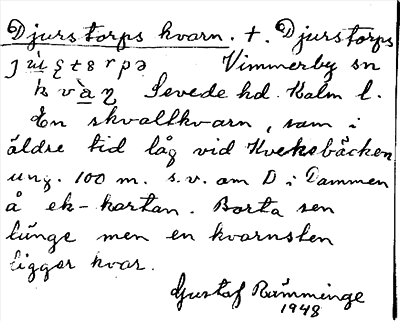 Djurstorps kvarn. t. Djurstorps
Vimmerby sn
Sevede hd. Kalm l.
En skvaltkvarn, som i
äldre tid låg vid Kveksbäcken
ung. 100 m. s.v. om D i Dammen
å ek-kartan. Borta sen
länge men en kvarnsten
ligger kvar.
Gustaf Rämminge
1948